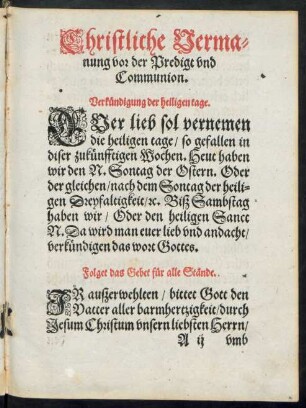 Christliche Verma-
nung vor der Predigt vnd
Communion.
Verkündigung der heiligen tage.
EWer lieb sol vernemen
die heiligen tage/ so gefallen in
diser zukünfftigen Wochen. Heut haben
wir den N. Sontag der Ostern. Oder
der gleichen/ nach dem Sontag der heili-
gen Dreyfaltigkeit/ ꝛc. Biß Sambstag
haben wir/ Oder den heiligen Sanct
N. Da wird man euer lieb vnd andacht/
verkündigen das wort Gottes.
Folget das Gebet für alle Stände.
IR außerwehlten/ bittet Gott den
Vatter aller barmhertzigkeit/ durch
Jesum Christum vnsern liebsten Herrn/
A ij vmb